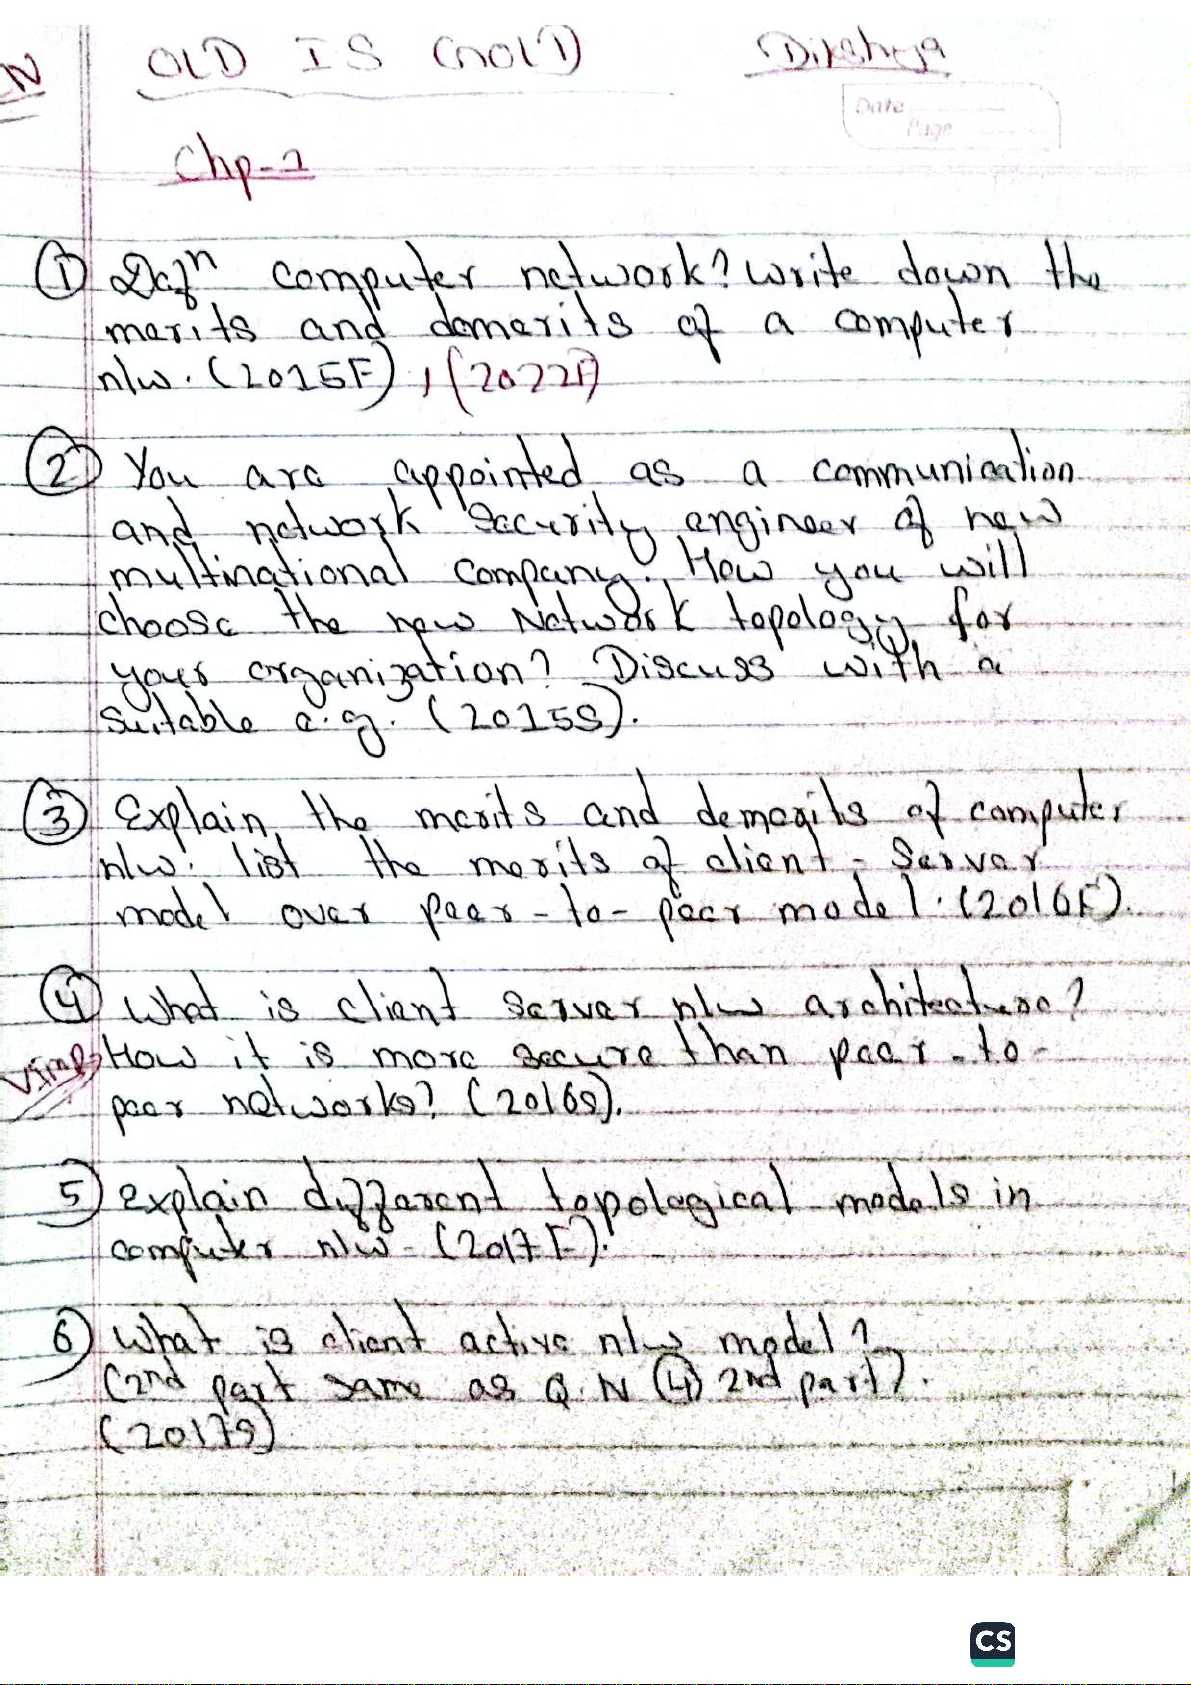 CN OLD IS GOLD Dikshya
Date
Page
Chp-1
① Defⁿ computer network? Write down the
merits and demerits of a computer
n/w. (2015F), (2022F)
② You are appointed as a communication
and network security engineer of new
multinational company. How you will
choose the new Network topology for
your organization? Discuss with a
suitable e.g. (2015S).
③ Explain the merits and demerits of computer
n/w. list the merits of client-server
model over peer-to-peer model. (2016F).
④ What is client server n/w architecture?
VImp How it is more secure than peer-to-
peer networks? (2016S).
5) explain different topological models in
computer n/w - (2017F).
6) What is client active n/w model?
(2nd part same as Q.N ④ 2nd part).
(2017S)
CS